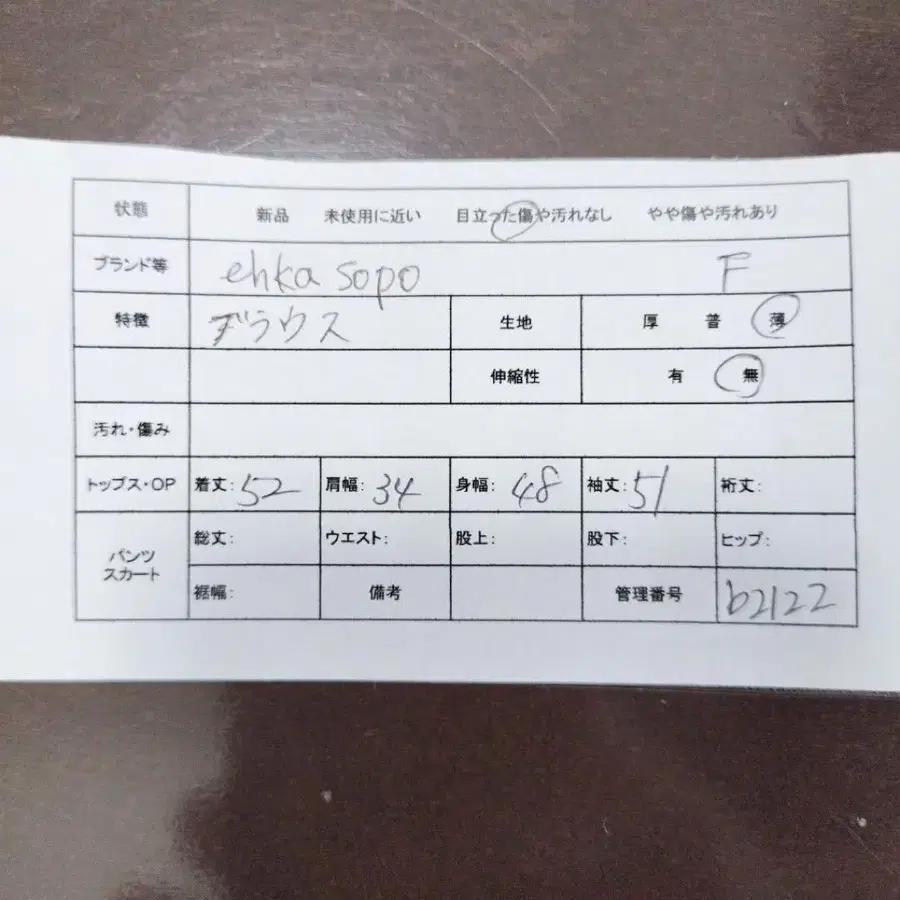 状態 新品 未使用に近い 目立った傷や汚れなし やや傷や汚れあり
ブランド等 ehka sopo F
特徴 ブラウス 生地 厚 普 薄
伸縮性 有 無
汚れ・傷み
トップス・OP 着丈: 52 肩幅: 34 身幅: 48 袖丈: 51 裄丈:
パンツ スカート 総丈: ウエスト: 股上: 股下: ヒップ:
裾幅: 備考 管理番号 b2122